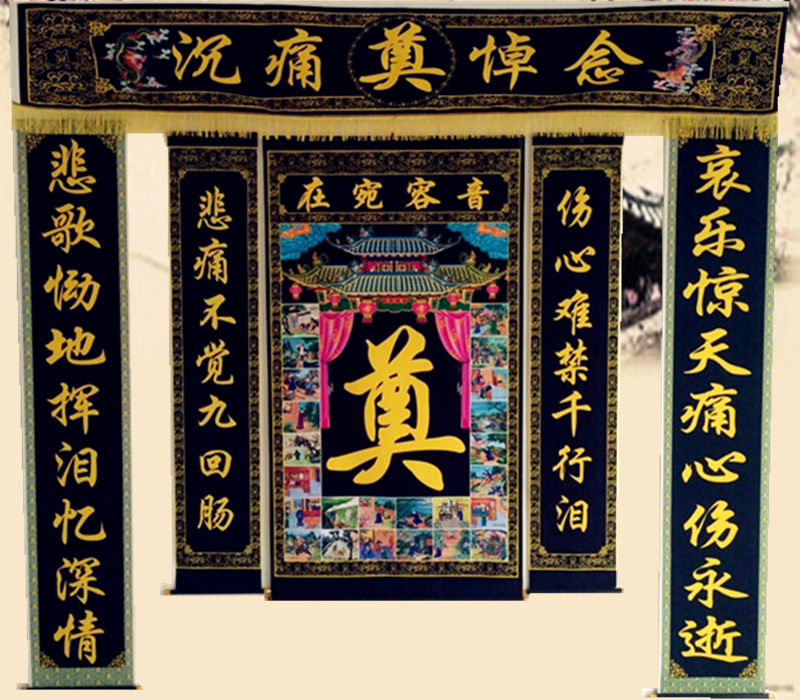 沉痛奠悼念
音容宛在
奠
哀乐惊天痛心伤永逝
悲歌恸地挥泪忆深情
伤心难禁千行泪
悲痛不觉九回肠